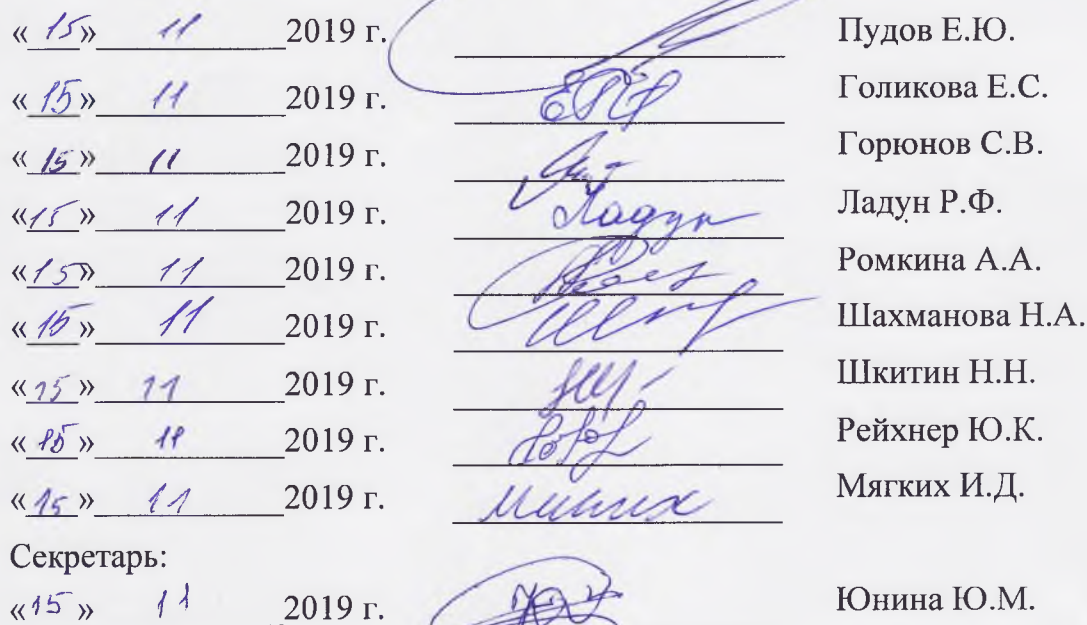 «15» 11 2019 г. Пудов Е.Ю.
«15» 11 2019 г. Голикова Е.С.
«15» 11 2019 г. Горюнов С.В.
«15» 11 2019 г. Ладун Ладун Р.Ф.
«15» 11 2019 г. Ромкина А.А.
«15» 11 2019 г. Шахманова Н.А.
«15» 11 2019 г. Шкитин Н.Н.
«15» 11 2019 г. Рейхнер Ю.К.
«15» 11 2019 г. Мягких И.Д.
Секретарь:
«15» 11 2019 г. Юнина Ю.М.